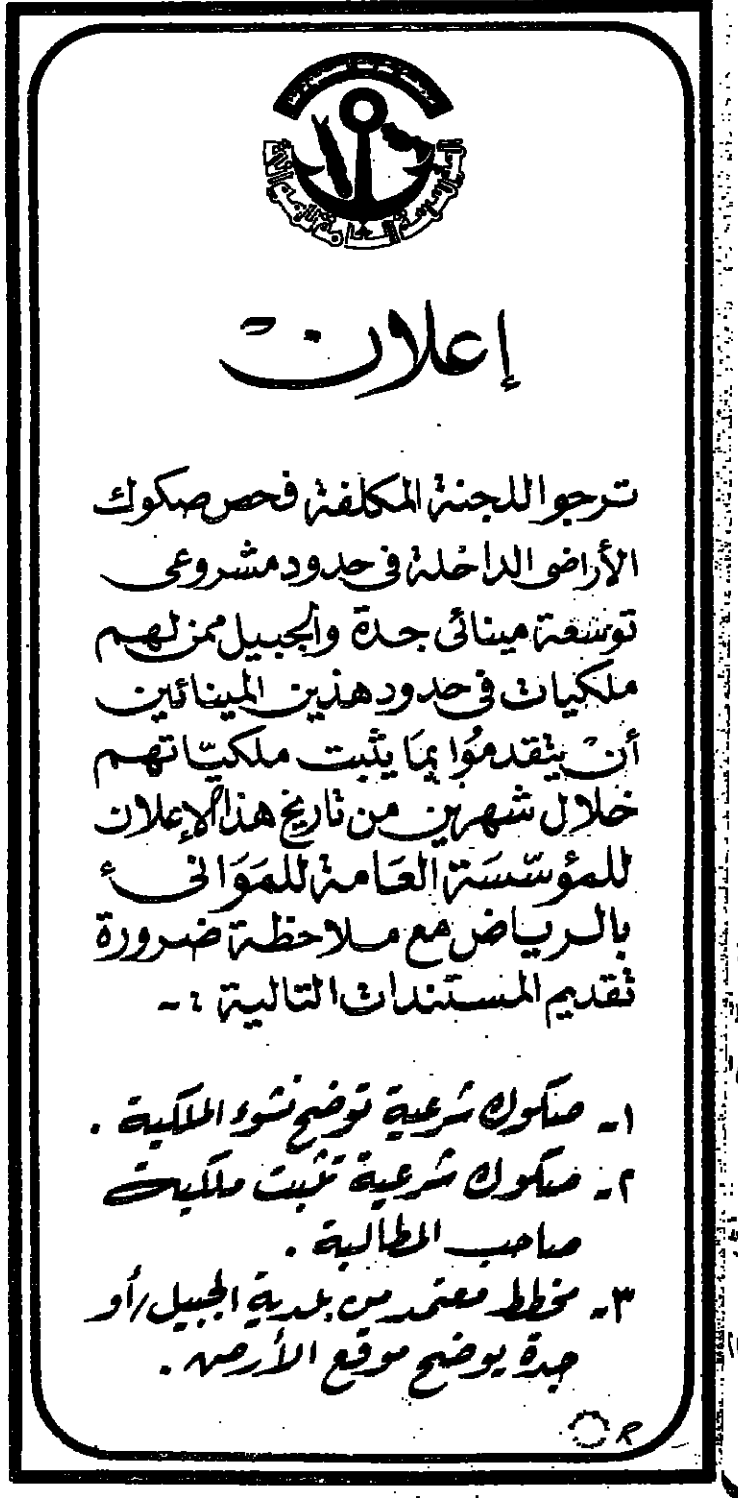 المؤسسة العامة للموانئ
إعلان
ترجوا اللجنة المكلفة فحص صكوك
الأراضى الداخلة فى حدود مشروعى
توسعة مينائى جدة والجبيل ممن لهم
ملكيات فى حدود هذين المينائين
أن يتقدموُا بمَا يثبت ملكيّاتهم
خلال شهرين من تاريخ هذا الإعلان
للمؤسّسَة العَامة للمَوَانىء
بالرياض مع ملاحظة ضرورة
تقديم المستندات التالية :-
١- صكوك شرعية توضح نشوء الملكية .
٢- صكوك شرعية تثبت ملكية
صاحب المطالبة .
٣- مخطط معتمد من بلدية الجبيل/أو
جدة يوضح موقع الأرض .
R